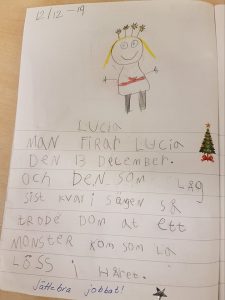 12/12 -19
LUCIA
MAN FIRAR LUCIA
DEN 13 DECEMBER.
OCH DEN SOM LÅG
SIST KVAR i SÄGEN SÅ
TRODE DOM AT ETT
MONSTER KOM SOM LA
LÖSS i HÅRET.
Jättebra jobbat!